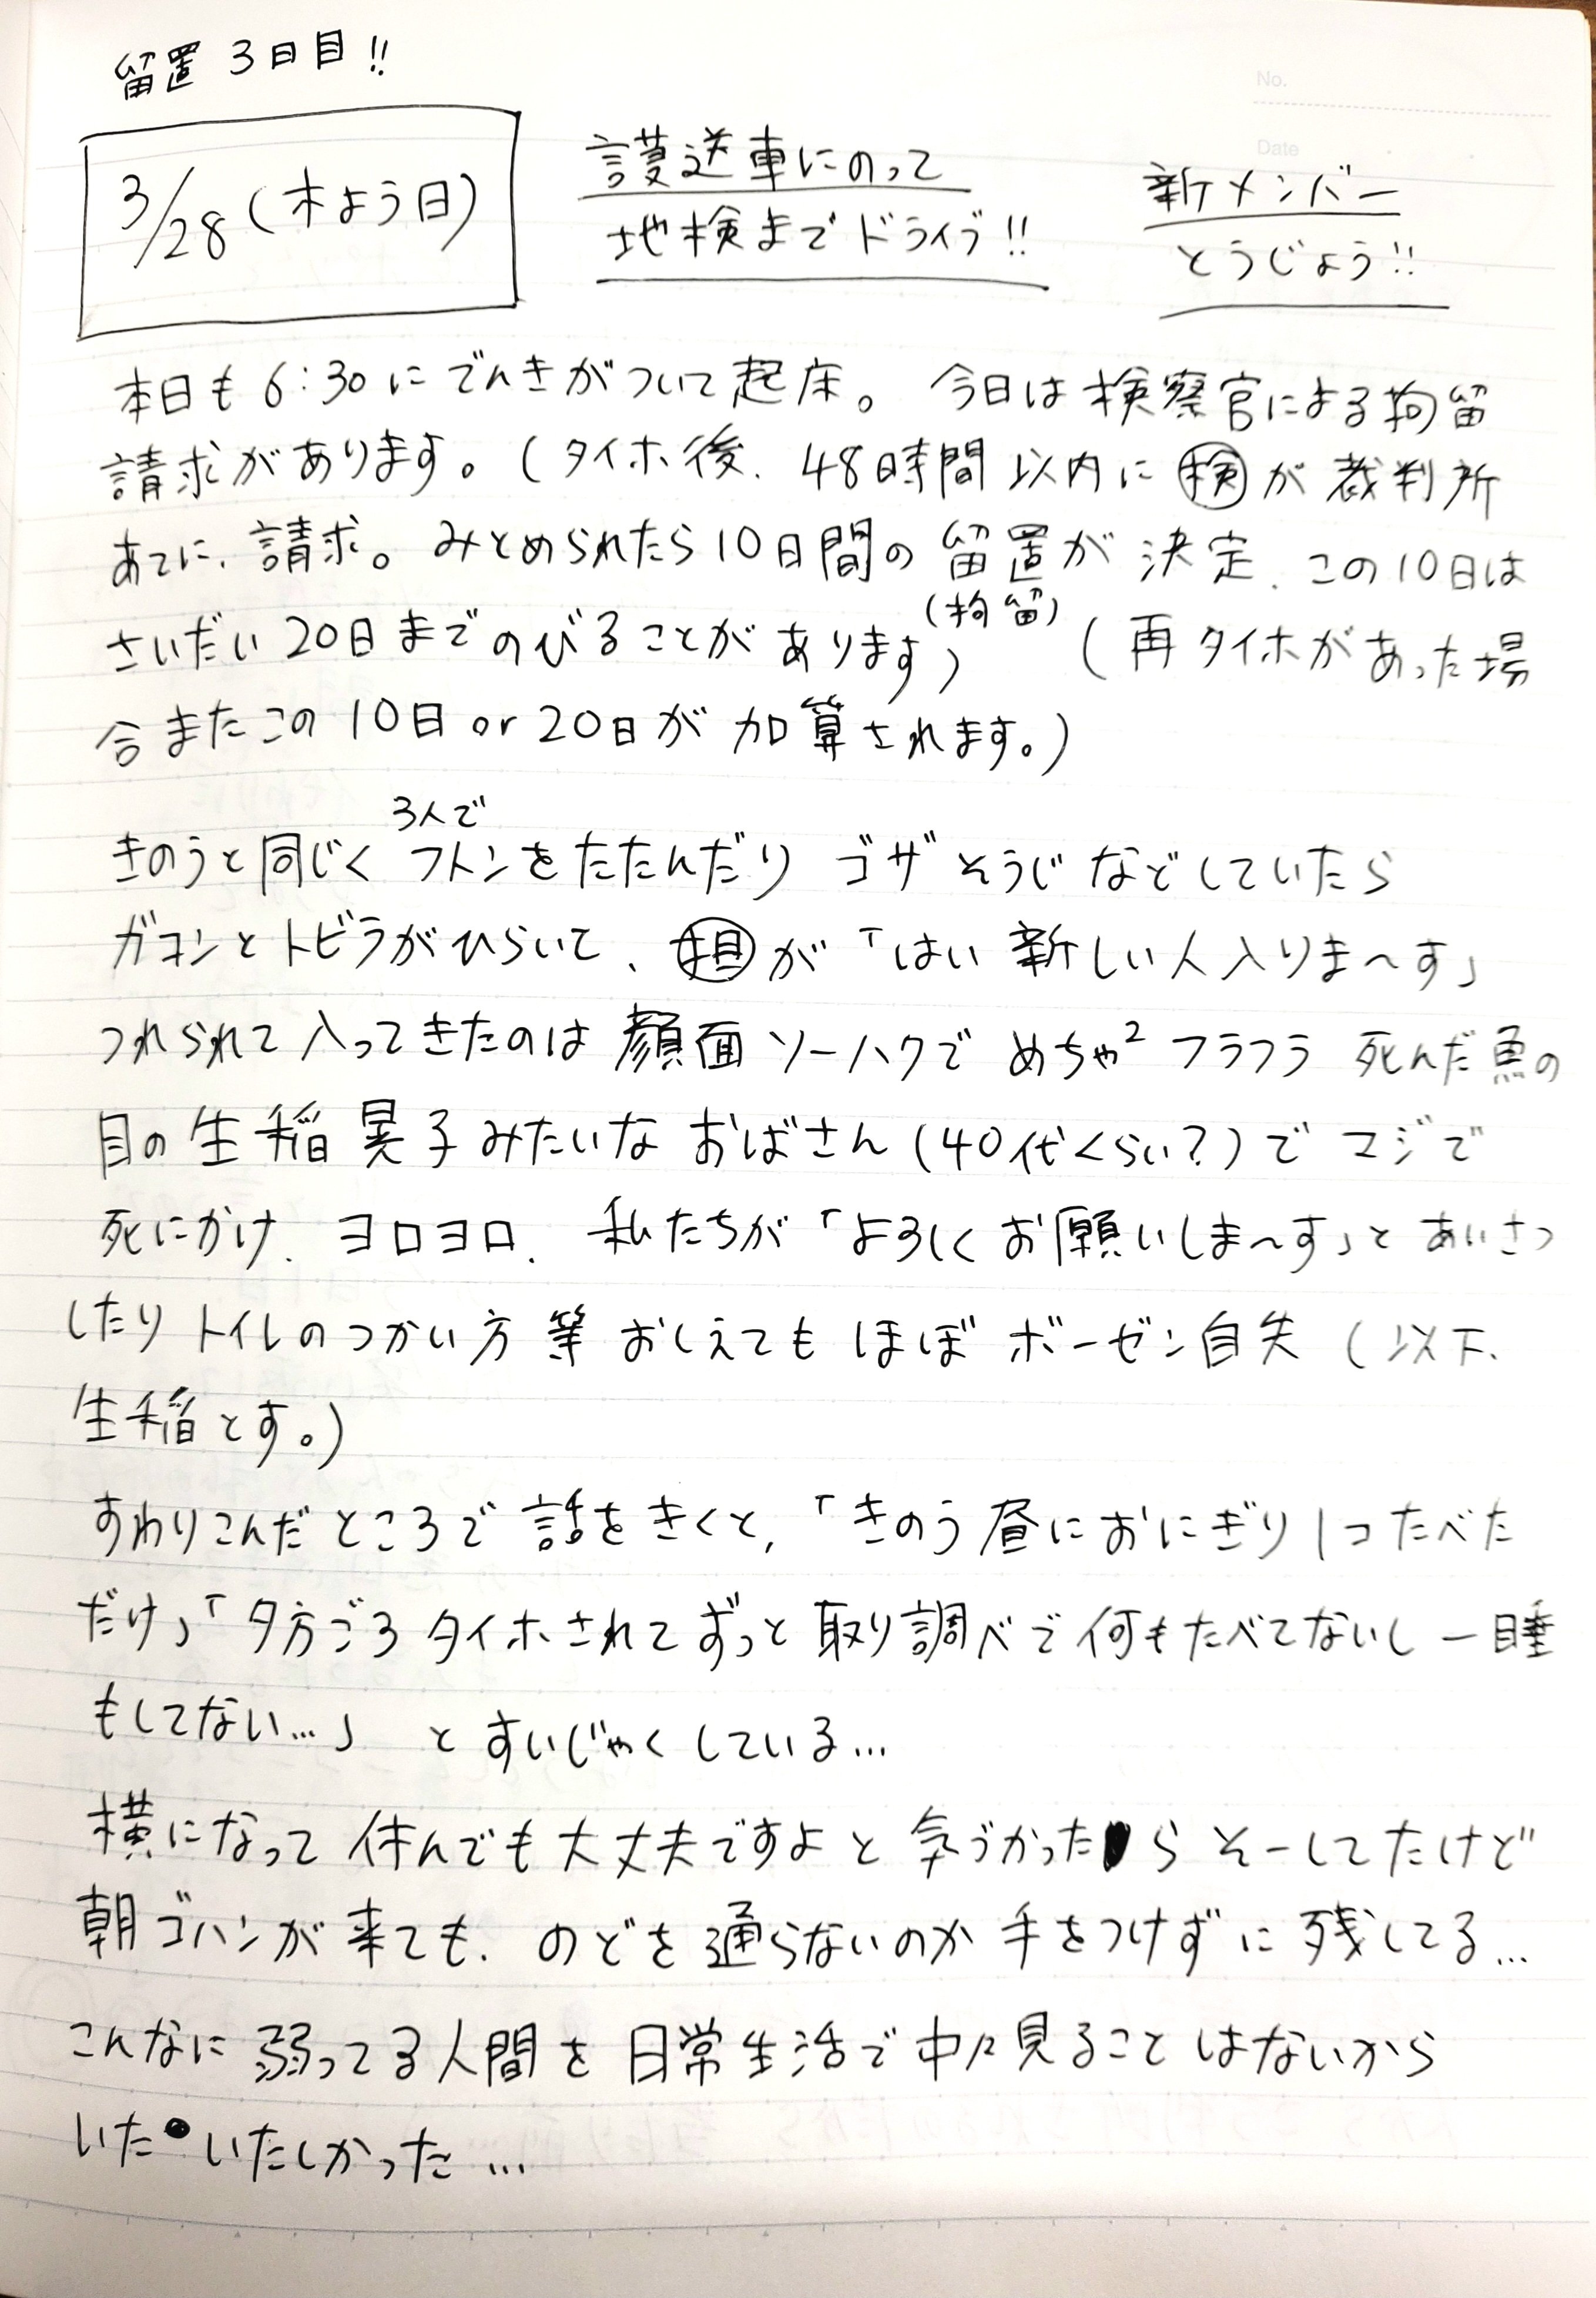 留置 3日目!!
No.
Date
3/28(木よう日)
護送車にのって
地検までドライブ!!
新メンバー
とうじょう!!
本日も6:30にでんきがついて起床。今日は検察官による拘留
請求があります。(タイホ後、48時間以内に㊝が裁判所
あてに、請求。みとめられたら10日間の留置が決定、この10日は
(拘留)
さいだい20日までのびることがあります) (再タイホがあった場
合またこの10日or20日が加算されます。)
3人で
きのうと同じくフトンをたたんだり ゴザそうじなどしていたら
ガコンとトビラがひらいて、が「はい 新しい人入りま〜す」
つれられて入ってきたのは顔面ソーハクでめちゃ²フラフラ 死んだ魚の
目の生稲晃子みたいなおばさん(40代くらい?)でマジで
死にかけ、ヨロヨロ、私たちが「よろしくお願いしま〜す」とあいさつ
したりトイレのつかい方等おしえてもほぼボーゼン自失(以下、
生稲とす。)
すわりこんだところで話をきくと、「きのう昼におにぎり1コたべた
だけ」「夕方ごろタイホされてずっと取り調べで何もたべてないし一睡
もしてない…」とすいじゃくしている…
横になって休んでも大丈夫ですよと気づかったらそーしてたけど
朝ゴハンが来ても、のどを通らないのか手をつけずに残してる…
こんなに弱ってる人間を日常生活で中々見ることはないから
いたいたしかった…